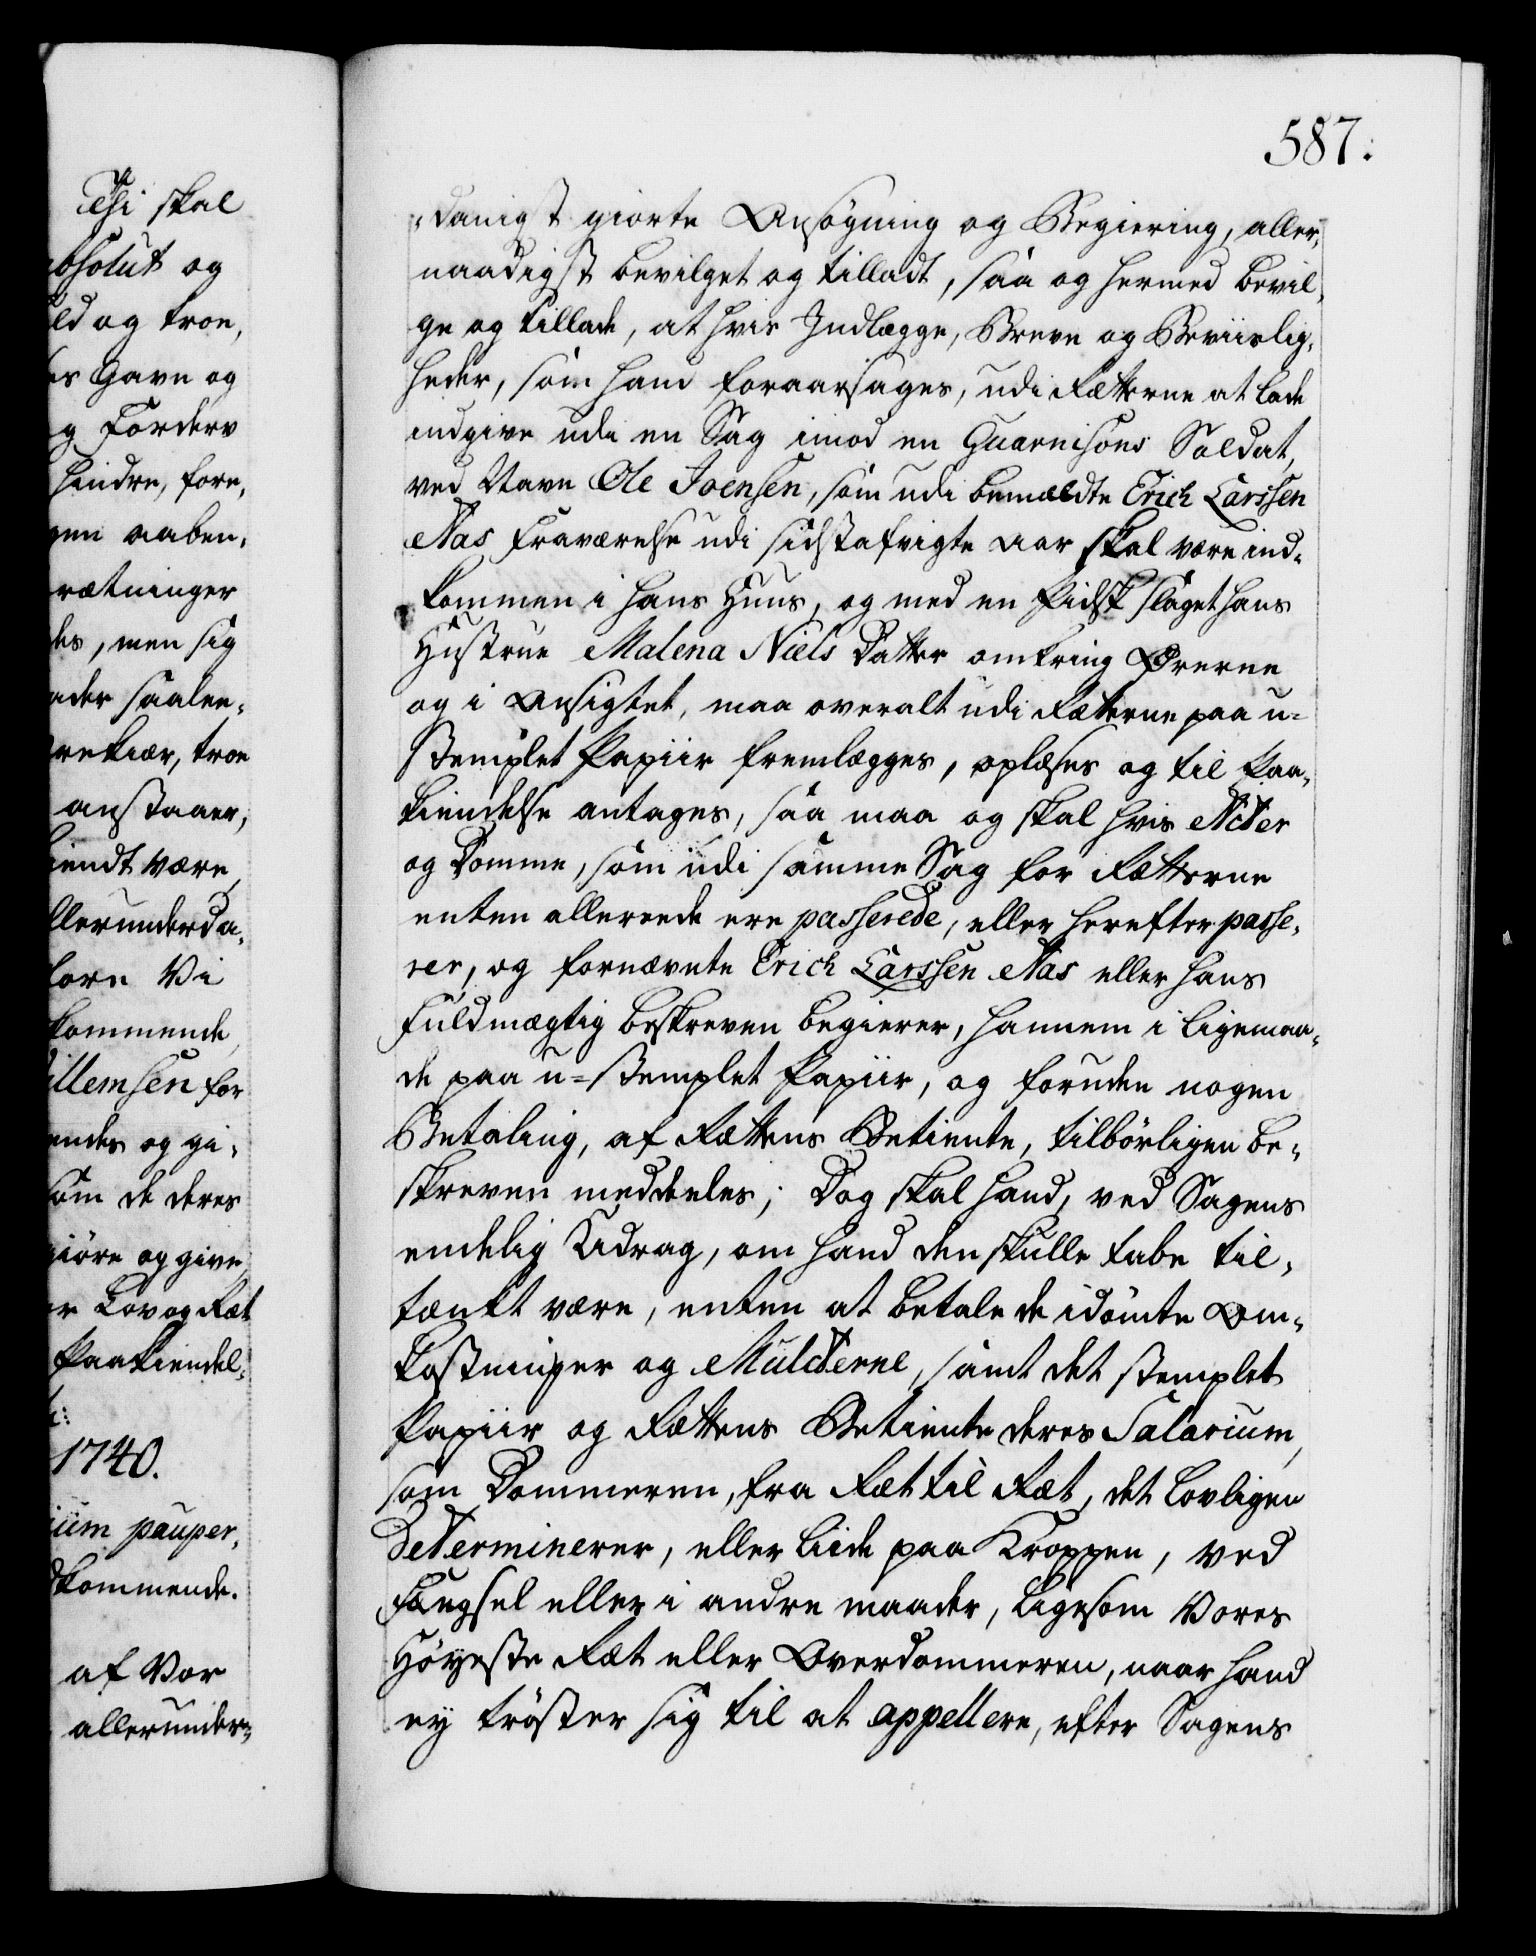 Thi skal
absolut og
ld og troe,
es Gavn og
g Forderv
hindre, fore,
gen aaben,
rætninger
des, men sig
ader saalen,
rekiær, troe
anstaaer,
iendt være,
llerunderda,
lore Vi
kommende,
illemsen for
endes og gi,
som de deres
giøre og give,
er Lov og Ræt
Paakiendel,
1740.
ium pauper,
dkommende.
af Vor
allerunder=
587.
„danigst giorte Ansøgning og Begiering, aller,
naadigst bevilget og tilladt, saa og hermed bevil,
ge og tillade, at hvis Indlægge, Breve og Beviislig,
heder, som hand foraarsages, udi Rætterne at lade
indgive udi en Sag imod en Guarnisons Soldat,
ved Navn Ole Joensen, som udi bemældte Erich Larssen
Nas Fraværelse udi sidstafvigte Aar skal være ind=
kommen i hans Huus, og med en Pidsk slaget hans
Hustrue Malena Niels Datter omkring Ørerne
og i Ansigtet, maa overalt udi Rætterne paa u=
stemplet Papiir fremlægges, oplæses og til Paa,
kiendelse antages, saa maa og skal hvis Acter
og Domme, som udi samme Sag for Rætterne
enten allereede ere passerede, eller herefter passe,
rer, og fornævnte Erich Larssen Nas eller hans
Fuldmægtig beskreven begierer, hannem i ligemaa,
de paa u=stemplet Papiir, og foruden nogen
Betaling, af Rættens Betiente, tilbørligen be,
skreven meddeeles; Dog skal hand, ved Sagens
endelig Uddrag, om hand den skulle tabe til,
tænkt være, enten at betale de idømte Om,
kostninger og Mulcterne, samt det stemplet
Papiir og Rættens Betiente deres Salarium,
som Dommeren, fra Ræt til Ræt, det lovligen
determinerer, eller liide paa Kroppen, ved
Fængsel eller i andre maader, ligesom Vores
Høyeste Ræt eller Overdommeren, naar hand
ey trøster sig til at appellere, efter Sagens